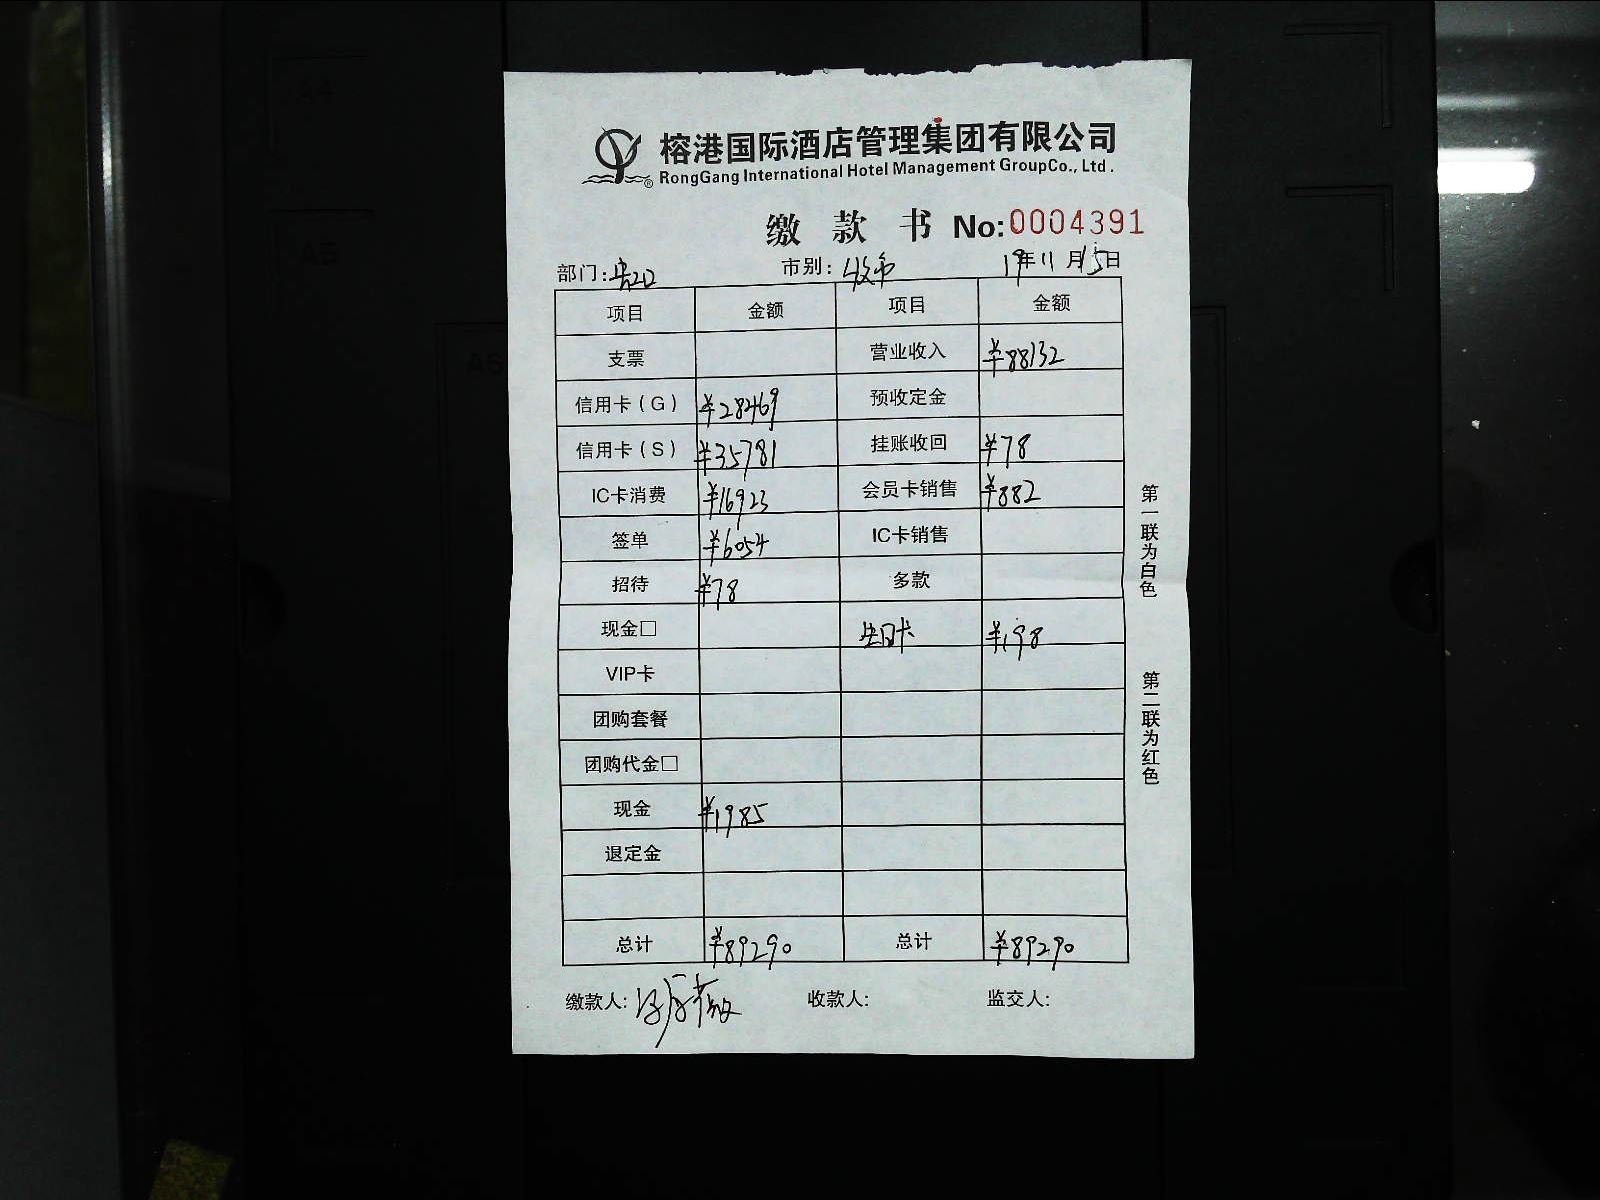 榕港国际酒店管理集团有限公司
RongGang International Hotel Management GroupCo., Ltd.
缴 款 书 No:0004391
部门: 市别: 19年11月15日
项目 金额 项目 金额
支票 营业收入 ¥88132
信用卡(G) ¥28469 预收定金
信用卡(S) ¥35781 挂账收回 ¥78
IC卡消费 ¥16923 会员卡销售 ¥882
签单 ¥6054 IC卡销售
招待 ¥78 多款
现金□ 生日卡 ¥198
VIP卡
团购套餐
团购代金□
现金 ¥1985
退定金
总计 ¥89290 总计 ¥89290
缴款人: 收款人: 监交人:
第一联为白色
第二联为红色
A4
A5
A6